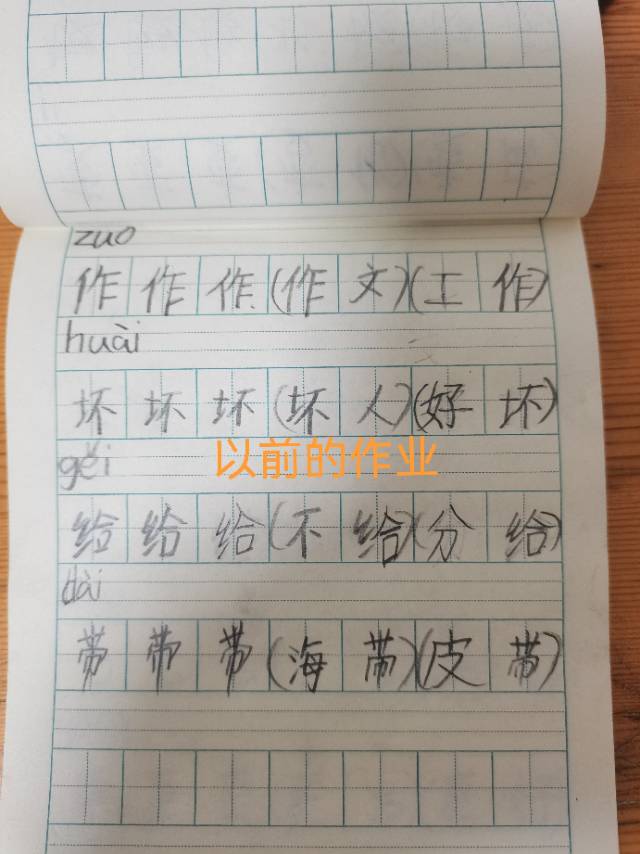 zuo
作作作(作文)(工作)
huài
坏坏坏(坏人)(好坏)
以前的作业
gěi
给给给(不给)(分给)
dài
带带带(海带)(皮带)